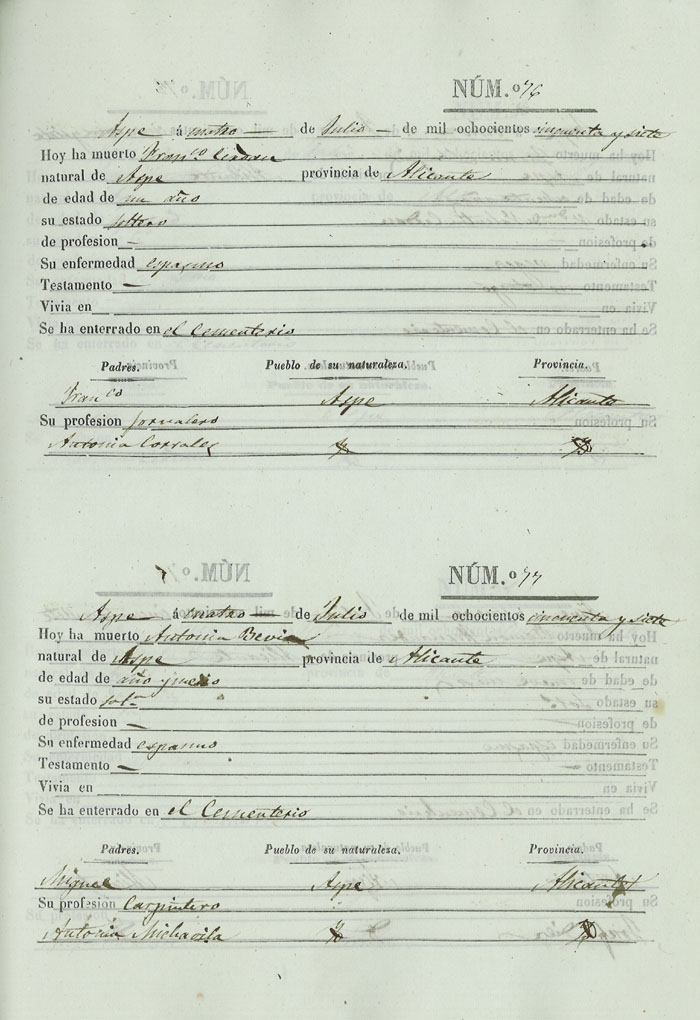 NÚM.º 76
Aspe á cuatro de Julio de mil ochocientos cincuenta y siete
Hoy ha muerto Franco
natural de Aspe provincia de Alicante
de edad de un año
su estado soltero
de profesion —
Su enfermedad espasmo
Testamento —
Vivia en
Se ha enterrado en el Cementerio
Padres. Pueblo de su naturaleza. Provincia.
Franco Aspe Alicante
Su profesion Jornalero
Antonia Corrales
NÚM.º 77
Aspe á cuatro de Julio de mil ochocientos cincuenta y siete
Hoy ha muerto Antonia Bevia
natural de Aspe provincia de Alicante
de edad de año y medio
su estado solª
de profesion —
Su enfermedad espasmo
Testamento —
Vivia en
Se ha enterrado en el Cementerio
Padres. Pueblo de su naturaleza. Provincia.
Miguel Aspe Alicante
Su profesión Carpintero
Antonia Michavila